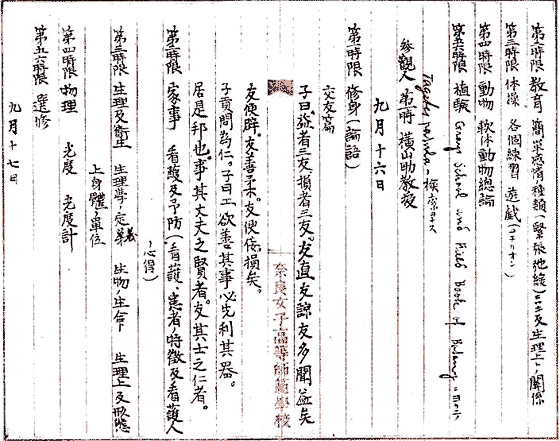 第二時限 教育 簡単感情種類(緊張弛緩)
第三時限 体操 各個練習 遊戯
第四時限 動物 軟体動物総論
第五六時限 植験 Gray School and Field Book of Botany
検索
参観人 第一時 横山助教授
九月十六日
第一時限 修身(論語)
交友篇
子曰益者三友、損者三友。友直友諒友多聞益矣
友便辟、友善柔、友便佞、損矣。
子貢問為仁。子曰工欲善其事必先利其器。
居是邦也事其大夫之賢者。友其士之仁者。
第二時限 家事 看護及予防(看護、患者ノ特徴及看護人
ノ心得)
第三時限 生理及衛生 生理学ノ定義 生物ノ生命 生理上及形態
上身體ノ単位
第四時限 物理 光度 光度計
第五六時限 選修
九月十七日
奈良女子高等師範學校